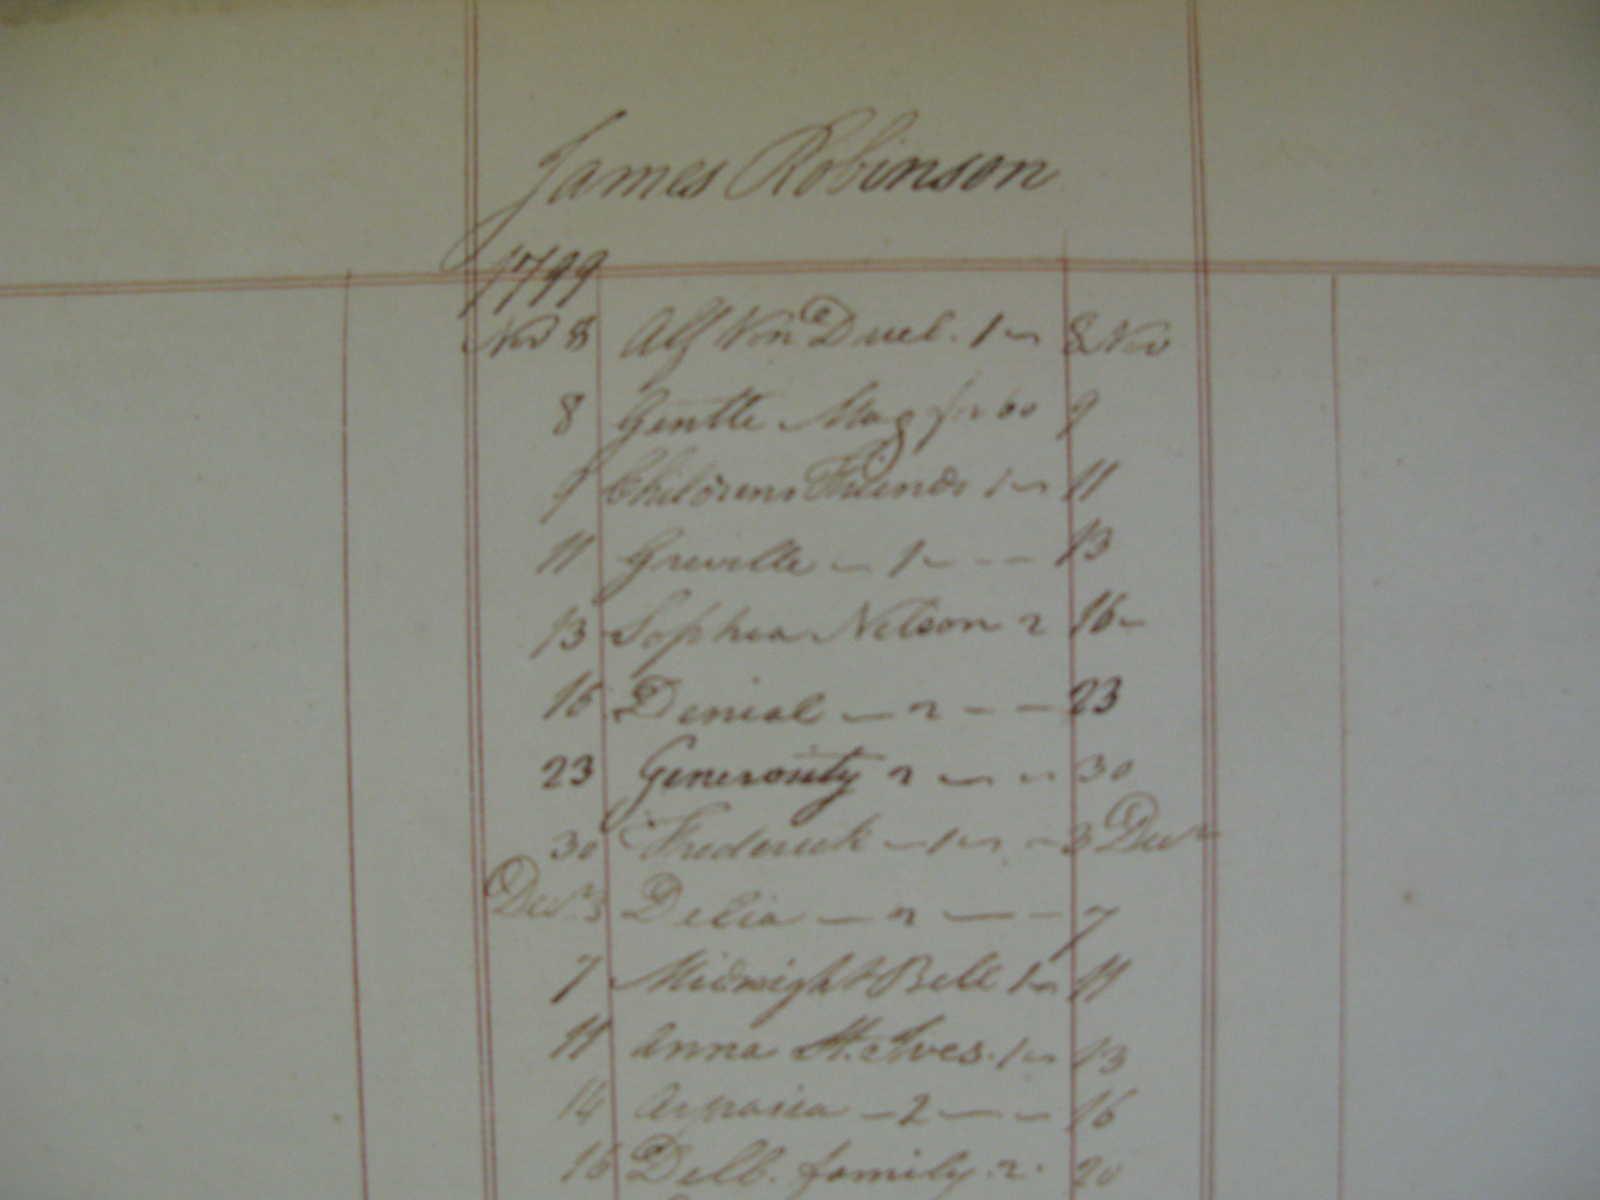 James Robinson
1799
Nov 8 Alf Von Duel. 1 8 Nov
8 Gentle Mag for 60 9
9 Childrens Friend 1 11
11 Greville — 1 — — — 13
13 Sophia Nelson 2 16
16 Denial — 2 — — 23
23 Generosity 2 — 30
30 Frederick — 1 — 3 Decr
Decr 3 Delia — 2 — — 7
7 Midnight Bell 1 11
11 Anna St. Ives. 1 13
14 — 2 — — 16
16 Delb. family. 2. 20